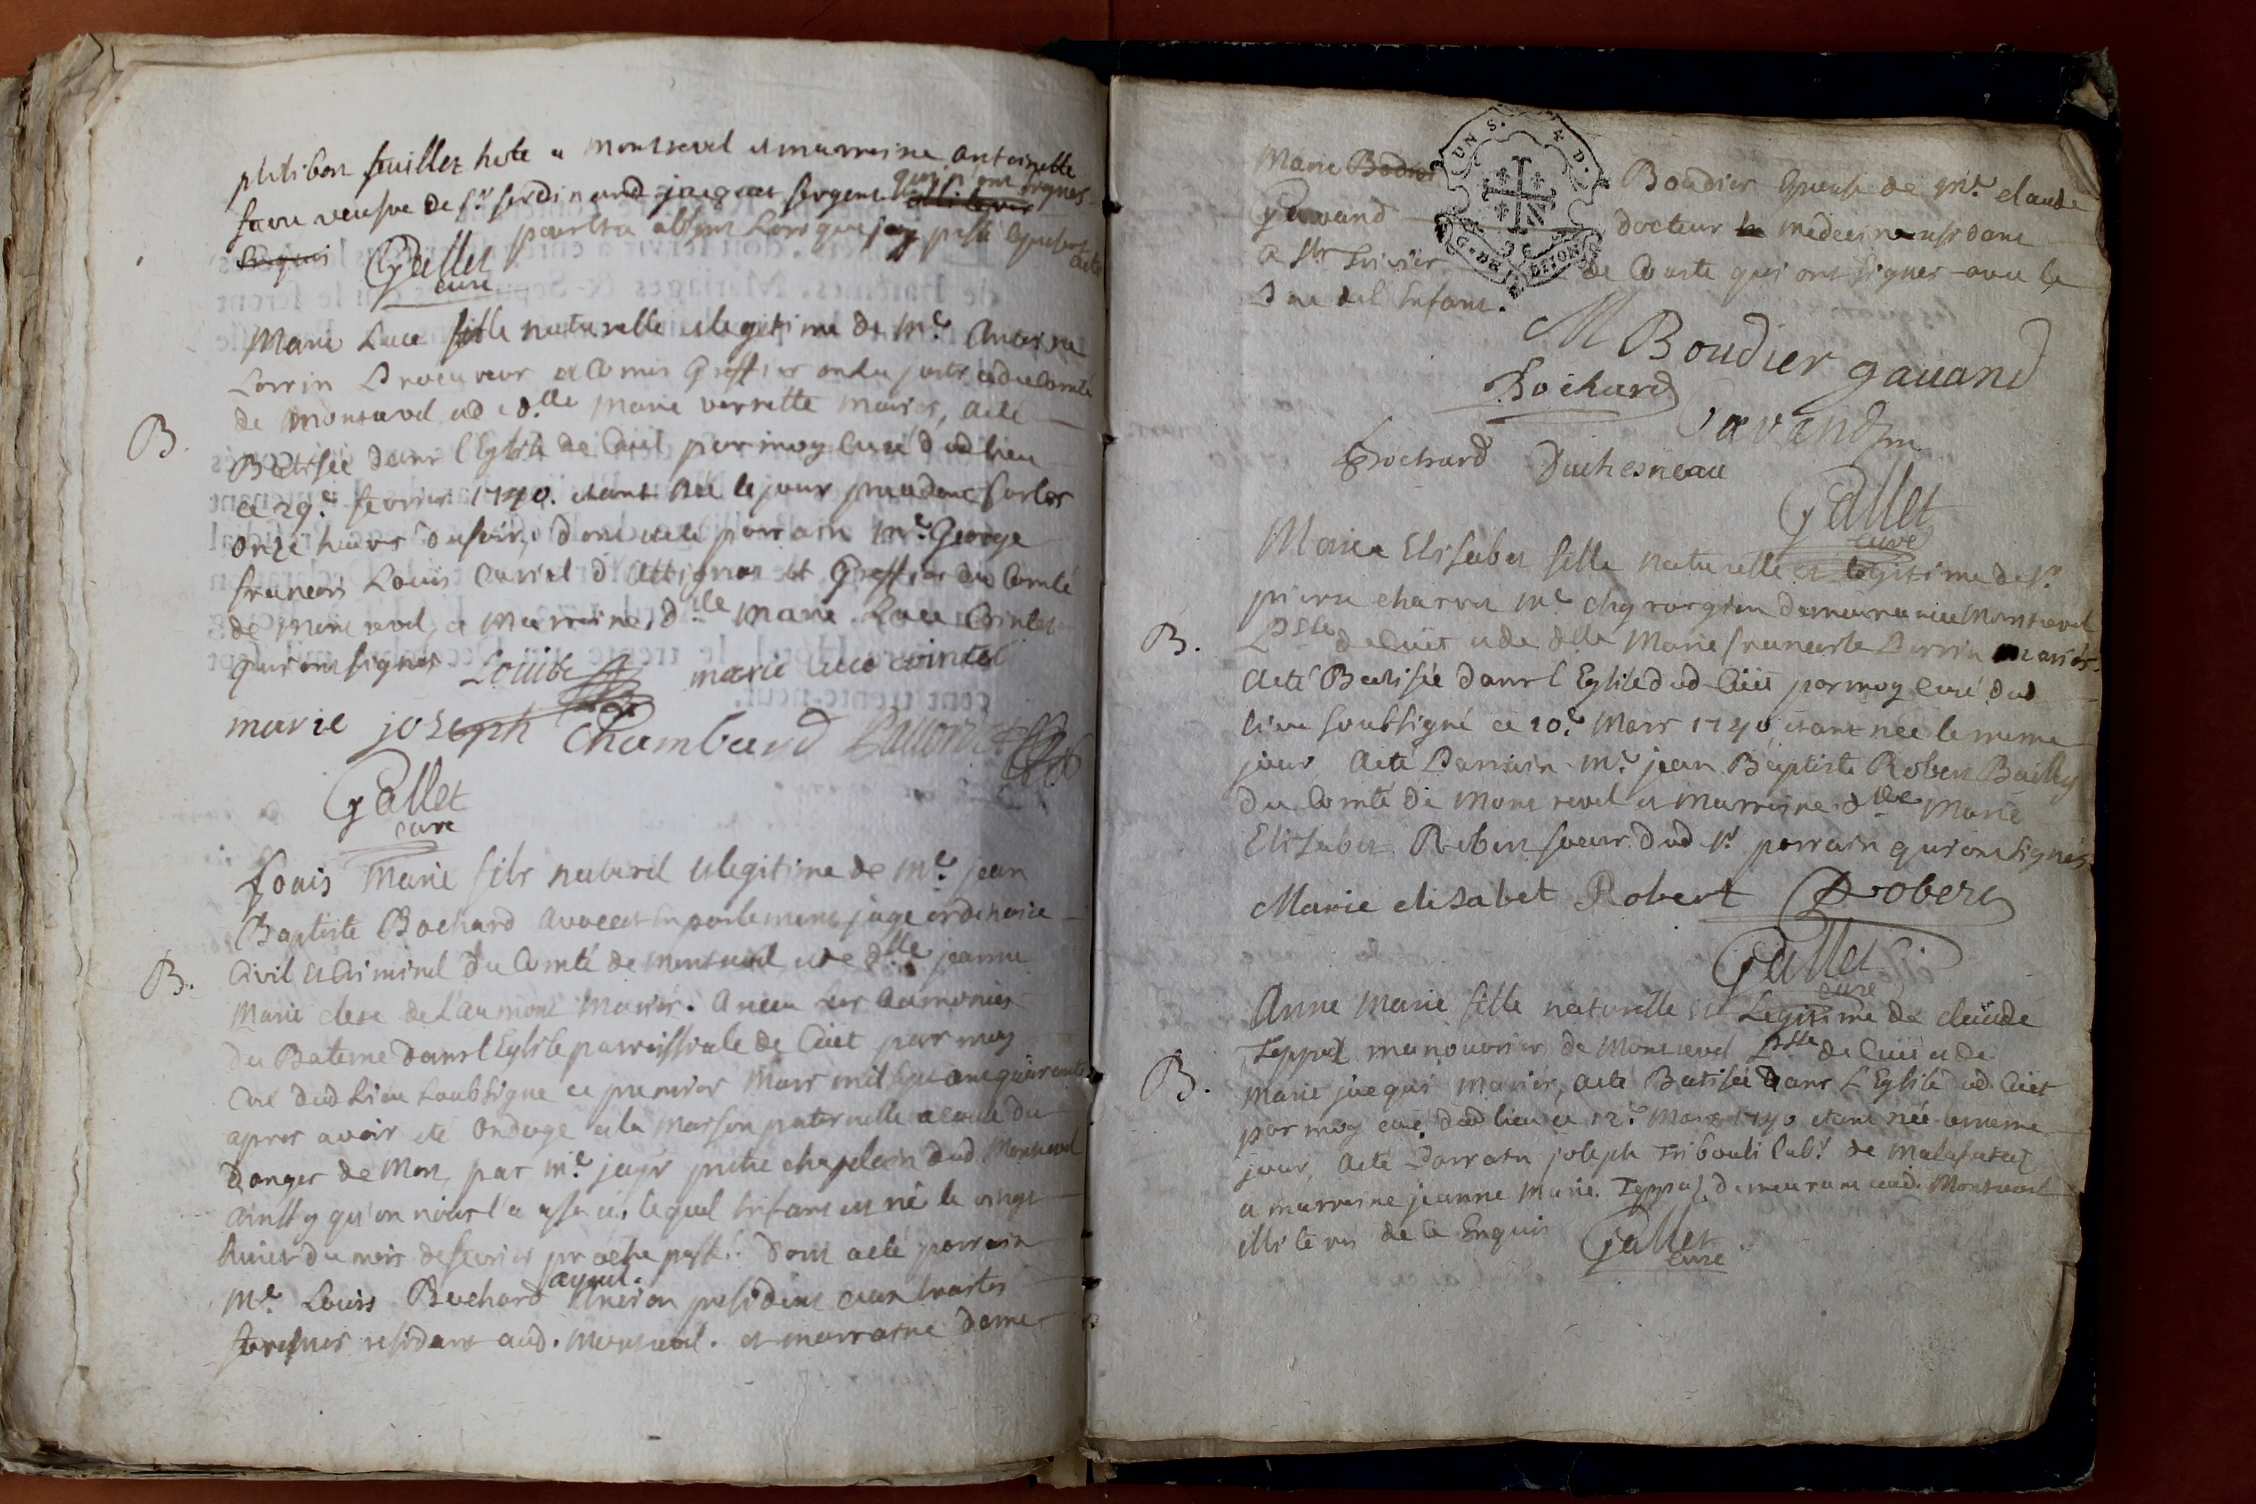 philibert feuillet hote a montrevel et marraine antoinette
favre veusve de sr. ferdinand jacquet sergent qui n'ont signes
pour etre absent Lorsque j'ay passé le present acte
Gallet
curé
Marie Luce fille naturelle et legitime de Me. Antoine
Lorrin Procureur et Comis Greffier en la justice du Comté
de Montrevel et de dlle Marie verrette Mariés, a eté
B.
Batisée dans l'Eglise de Cuet par moy Curé dud lieu
ce 29e. fevrier 1740. etant née le jour precedent sur les
onze heures du soir, dont a eté parrain Me. George
francois Louis Curial d'Attignat et Greffier du Comté
de Montrevel, et Marraine dlle Marie Luce Cointet
qui ont signes
marie luce cointet
marie joseph Chambard
Gallet
cure
Louis Marie fils naturel et legitime de Me. jean
Baptiste Bochard Avocat en parlement juge ordinaire
B.
Civil et Criminel du Comté de Montrevel et de dlle jeanne
Marie de Laumont Mariés. A receu les ceremonies
du Bateme dans l'Eglise parroissiale de Cuet par moy
Curé dud Lieu soubsigné ce premier Mars mil sept cent quarante
apres avoir eté ondoyé a la Maison paternelle a cause du
danger de Mort, par Me. jayr pretre chapelain dud Montrevel
ainsy qu'on nous l'a assuré, lequel Enfant est né le vingt
huict du mois de fevrier proche passé. dont a eté parrain
Me. Louis Bochard ayeul. Ancien president aux traites
foraines residant aud. Montrevel. et marraine dame
Marie Bodier Boudier Epouse de Mr. claude
Gavand docteur en medecine residant
a st Trivier de Courte qui ont signes avec le
Pere de l'Enfant.
M Boudier gavand
Bochard Gavand
Bochard Duchesneau
Gallet
curé
Marie Elisabet fille naturelle et legitime de sr.
pierre charvet Me. chyrurgien demeurant a Montrevel
B.
Psse de Cuet et de dlle Marie francoise Perrin mariés.
a eté Batisée dans l'Eglise dud Cuet par moy Curé dud
lieu soubsigné ce 10e. Mars 1740 etant née le meme
jour, a eté Parrain Me. jean Baptiste Robert Bailly
du Comté de Montrevel et Marraine dlle Marie
Elizabet Robert soeur dud sr. parrain qui ont signés
Marie elisabet Robert Robert
Gallet
curé
Anne Marie fille naturelle et Legitime de claude
manouvrier de Montrevel Psse de Cuet et de
B.
Marie jacqui mariés, a eté Batisée dans L'Eglise dud Cuet
par moy curé dud lieu ce 12e. Mars 1740 etant née le meme
jour, a eté Parrain joseph Tribouli labr. de
et marraine jeanne Marie demeurant aud. Montrevel
illiterés de ce Enquis
Gallet
curé